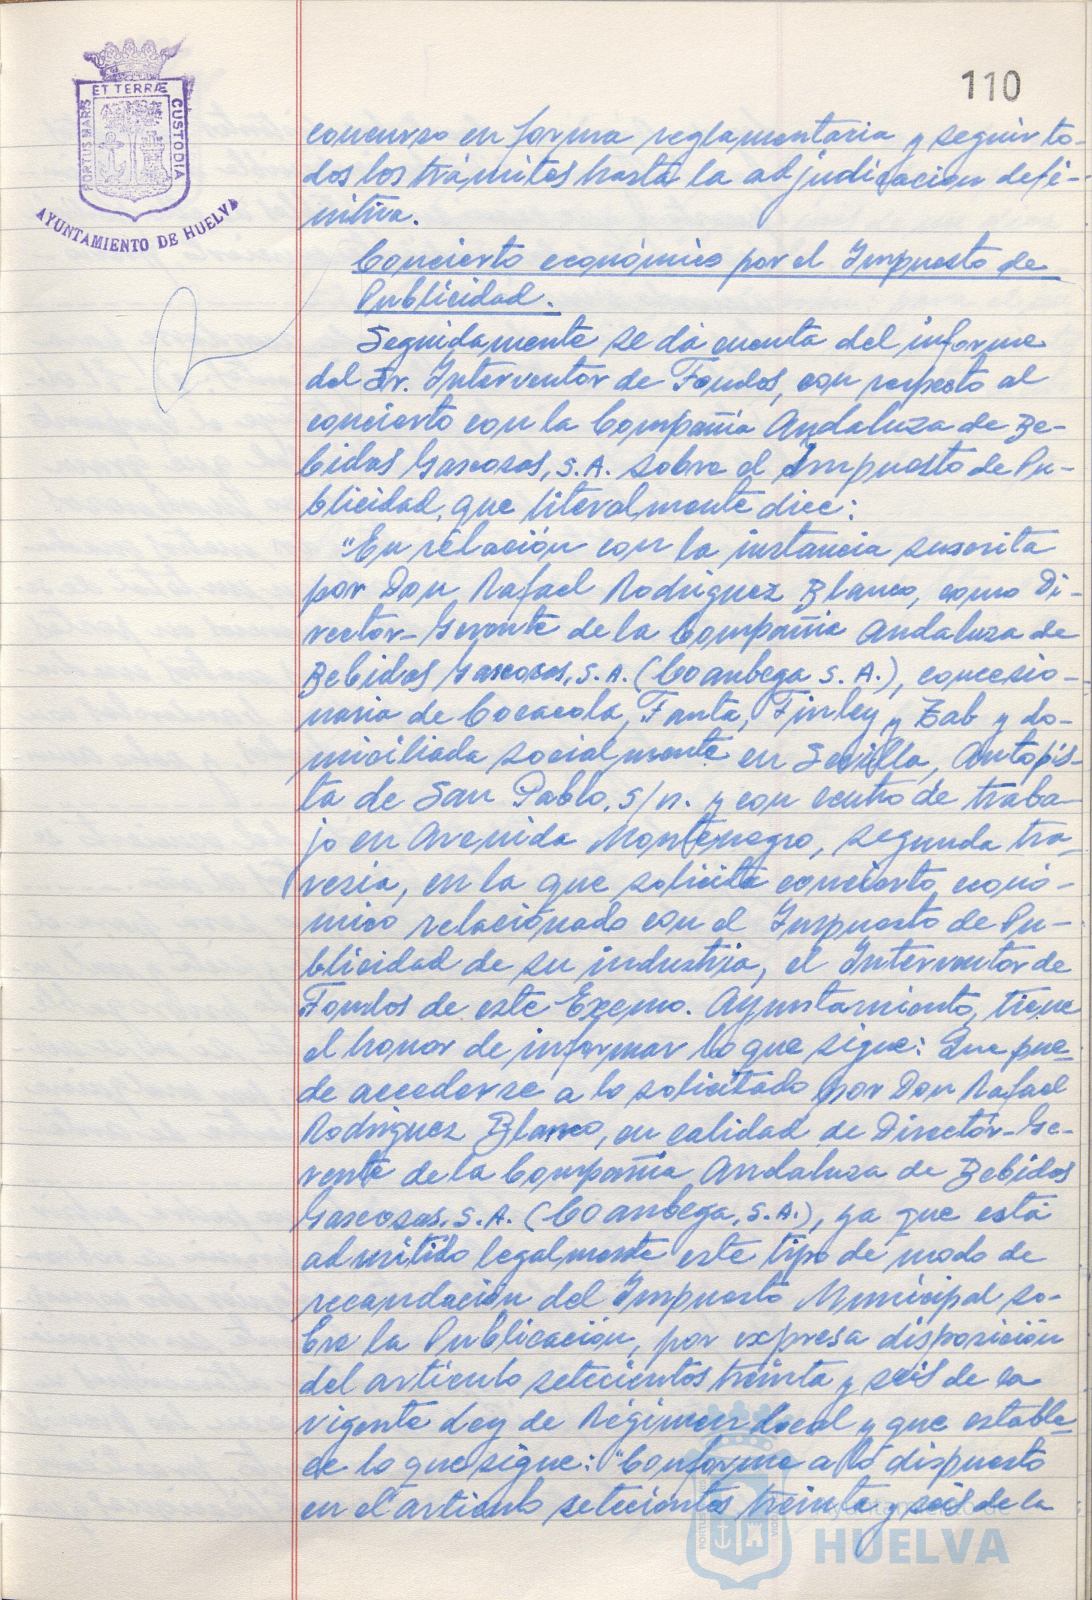 110
ET TERRÆ
PORTUS MARIS
CUSTODIA
AYUNTAMIENTO DE HUELVA
concurso en forma reglamentaria y seguir to-
dos los trámites hasta la adjudicación defi-
nitiva.
Concierto económico por el Impuesto de
Publicidad.
Seguidamente se dá cuenta del informe
del Sr. Interventor de Fondos, con respecto al
concierto con la Compañia Andaluza de Be-
bidas Gaseosas, S.A. sobre el Impuesto de Pu-
blicidad, que literalmente dice:
"En relación con la instancia suscrita
por Don Rafael Rodriguez Blanco, como Di-
rector-Gerente de la Compañia Andaluza de
Bebidas Gaseosas, S.A. (Coanbega S.A.), concesio-
naria de Cocacola, Fanta, Finley y Tab y do-
miciliada socialmente en Sevilla, Autopis-
ta de San Pablo, s/n. y con centro de traba-
jo en Avenida Montenegro, segunda tra-
vesia, en la que solicita concierto econó-
mico relacionado con el Impuesto de Pu-
blicidad de su industria, el Interventor de
Fondos de este Excmo. Ayuntamiento, tiene
el honor de informar lo que sigue: Que pue-
de accederse a lo solicitado por Don Rafael
Rodriguez Blanco, en calidad de Director-Ge-
rente de la Compañia Andaluza de Bebidas
Gaseosas, S.A. (Coanbega, S.A.), ya que está
admitido legalmente este tipo de modo de
recaudación del Impuesto Municipal so-
bre la Publicación, por expresa disposición
del articulo setecientos treinta y seis de la
vigente Ley de Régimen Local y que estable-
ce lo que sigue: "Conforme a lo dispuesto
en el articulo setecientos treinta y seis de la
Ayuntamiento de
HUELVA